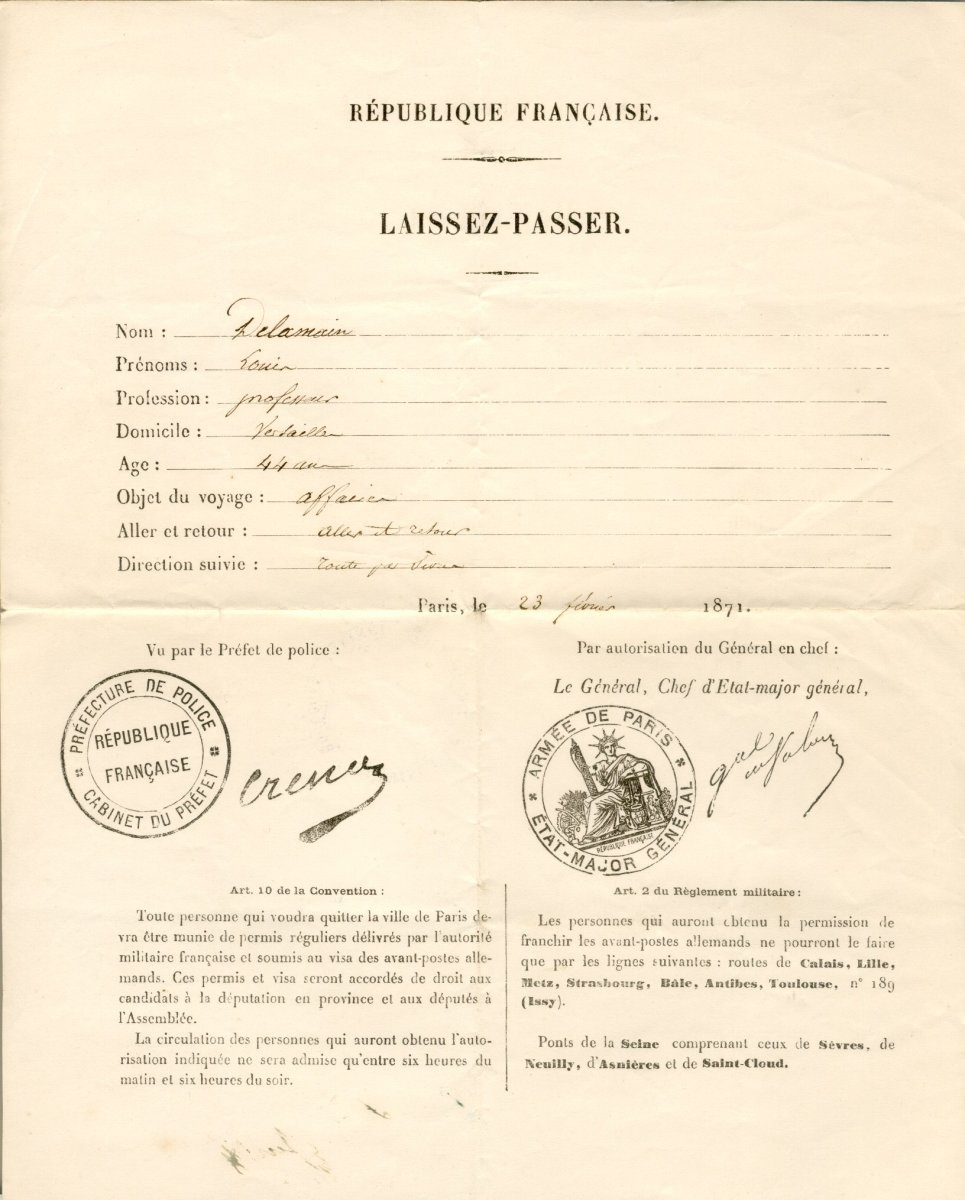 RÉPUBLIQUE FRANÇAISE.
LAISSEZ-PASSER.
Nom : Delamain
Prénoms : Louis
Profession : professeur
Domicile : Versailles
Age : 44 ans
Objet du voyage : affaires
Aller et retour : aller et retour
Direction suivie : route par
Paris, le 23 février 1871.
Vu par le Préfet de police :
Par autorisation du Général en chef :
Le Général, Chef d'Etat-major général,
PRÉFECTURE DE POLICE
RÉPUBLIQUE
FRANÇAISE
CABINET DU PRÉFET
ARMÉE DE PARIS
RÉPUBLIQUE FRANÇAISE
ÉTAT-MAJOR GÉNÉRAL
Art. 10 de la Convention :
Toute personne qui voudra quitter la ville de Paris de-
vra être munie de permis réguliers délivrés par l'autorité
militaire française et soumis au visa des avant-postes alle-
mands. Ces permis et visa seront accordés de droit aux
candidats à la députation en province et aux députés à
l'Assemblée.
La circulation des personnes qui auront obtenu l'auto-
risation indiquée ne sera admise qu'entre six heures du
matin et six heures du soir.
Art. 2 du Règlement militaire :
Les personnes qui auront obtenu la permission de
franchir les avant-postes allemands ne pourront le faire
que par les lignes suivantes : routes de Calais, Lille,
Metz, Strasbourg, Bâle, Antibes, Toulouse, n° 189
(Issy).
Ponts de la Seine comprenant ceux de Sèvres, de
Neuilly, d'Asnières et de Saint-Cloud.